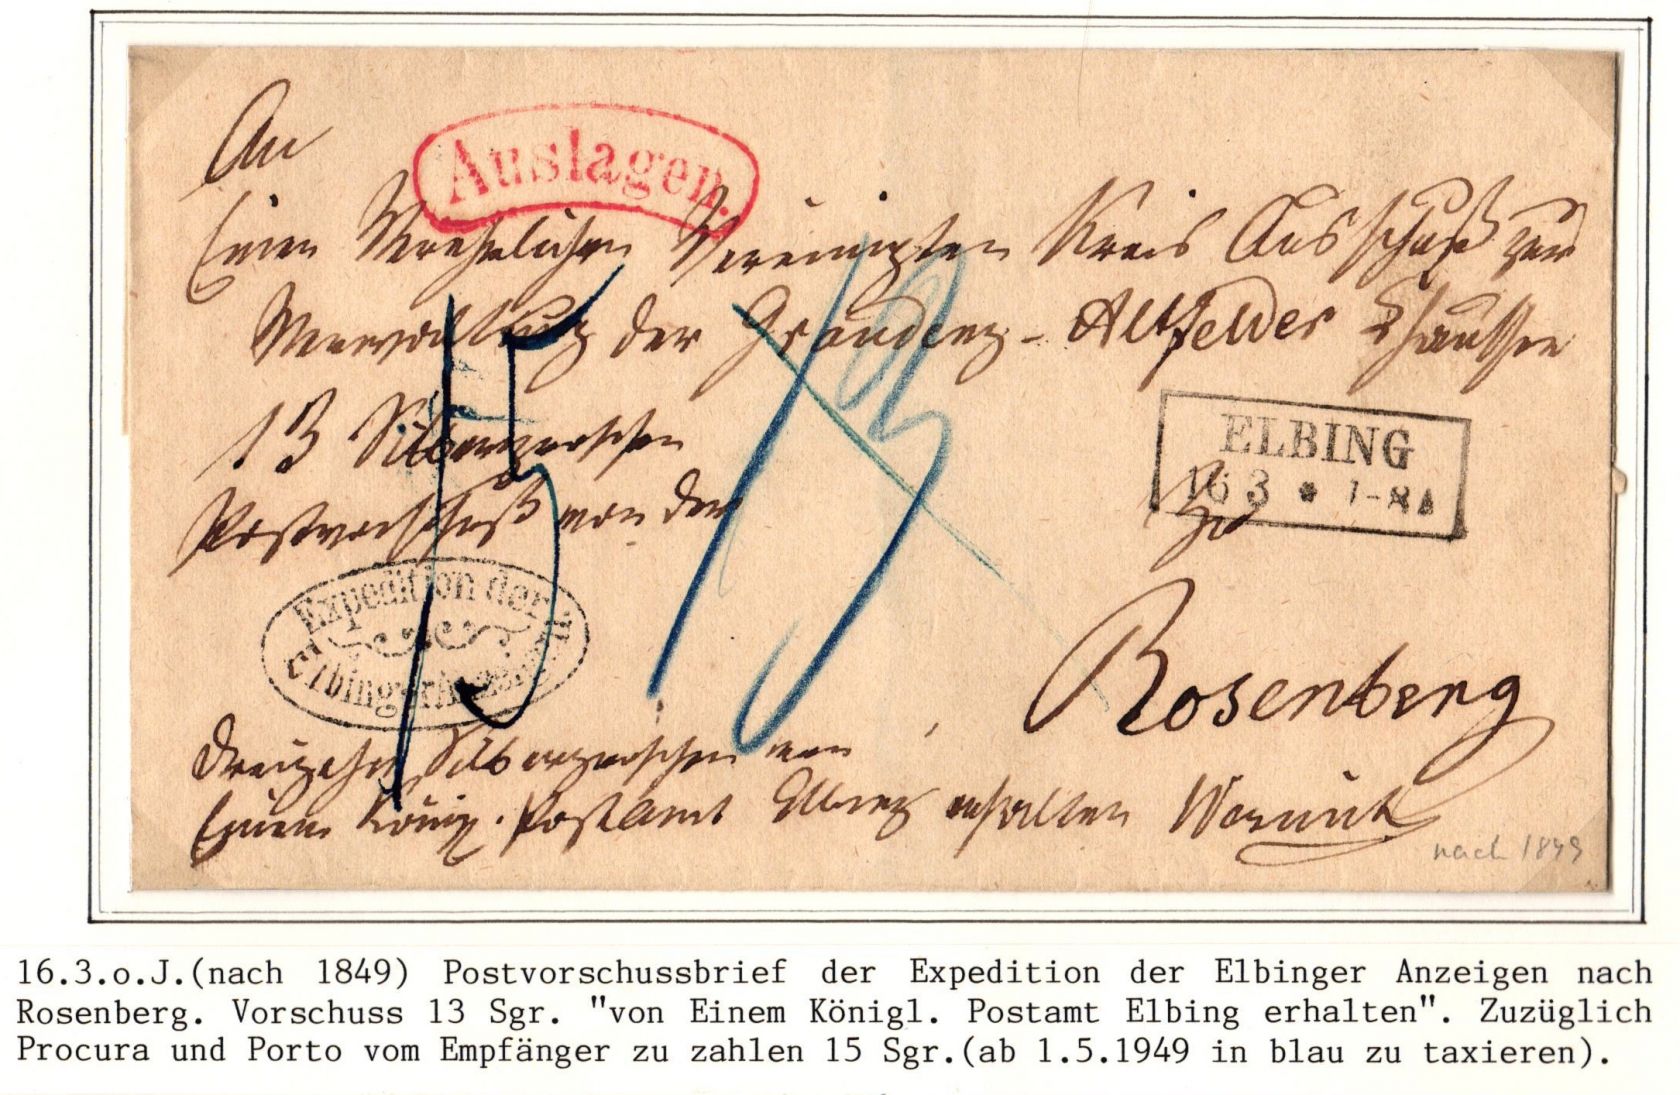 An
Auslagen.
Einen Verehrlichen Vereinigten Kreis Ausschuß zur
Verwaltung der Graudenz-Altfelder Chaussee
13 Silbergroschen
Postvorschuß von der
15
13
ELBING
16 3 * 7-8 A
Zu
Expedition der
Elbinger Anzeigen
Rosenberg
Dreizehn Silbergroschen von
Einem Königl. Postamt Elbing erhalten
nach 1849
16.3.o.J.(nach 1849) Postvorschussbrief der Expedition der Elbinger Anzeigen nach
Rosenberg. Vorschuss 13 Sgr. "von Einem Königl. Postamt Elbing erhalten". Zuzüglich
Procura und Porto vom Empfänger zu zahlen 15 Sgr.(ab 1.5.1949 in blau zu taxieren).